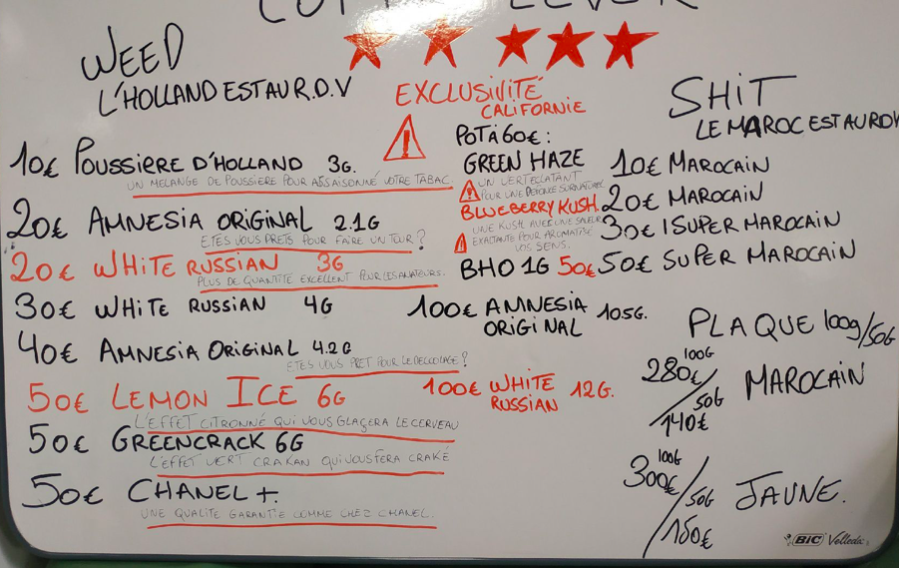 WEED
L'HOLLAND EST AU R.D.V
10€ POUSSIERE D'HOLLAND 3G.
UN MELANGE DE POUSSIERE POUR ASSAISONNÉ VOTRE TABAC.
20€ AMNESIA ORIGINAL 2.1G
ETES VOUS PRETS POUR FAIRE UN TOUR ?
20€ WHITE RUSSIAN 3G
PLUS DE QUANTITE EXCELLENT POUR LES AMATEURS.
30€ WHITE RUSSIAN 4G
40€ AMNESIA ORIGINAL 4.2G
ETES VOUS PRET POUR LE DECOLLAGE ?
50€ LEMON ICE 6G
L'EFFET CITRONNÉ QUI VOUS GLAÇERA LE CERVEAU
50€ GREENCRACK 6G
L'EFFET VERT CRAKAN QUI VOUS FERA CRAKÉ
50€ CHANEL +.
UNE QUALITE GARANTIE COMME CHEZ CHANEL.
EXCLUSIVITÉ
CALIFORNIE
POT À 60€ :
GREEN HAZE
UN VERT ECLATANT
POUR UNE DEFONCE
BLUEBERRY KUSH.
UNE KUSH AVEC UNE SAVEUR
EXALTANTE POUR AROMATISÉ
VOS SENS.
BHO 1G 50€
100€ AMNESIA 105G.
ORIGINAL
100€ WHITE 12G.
RUSSIAN
SHIT
LE MAROC EST AU RDV
10€ MAROCAIN
20€ MAROCAIN
30€ 1 SUPER MAROCAIN
50€ SUPER MAROCAIN
PLAQUE 100g/50G
100G
280€/50G MAROCAIN
140€
100G
300€/50G JAUNE.
150€
BIC Velleda